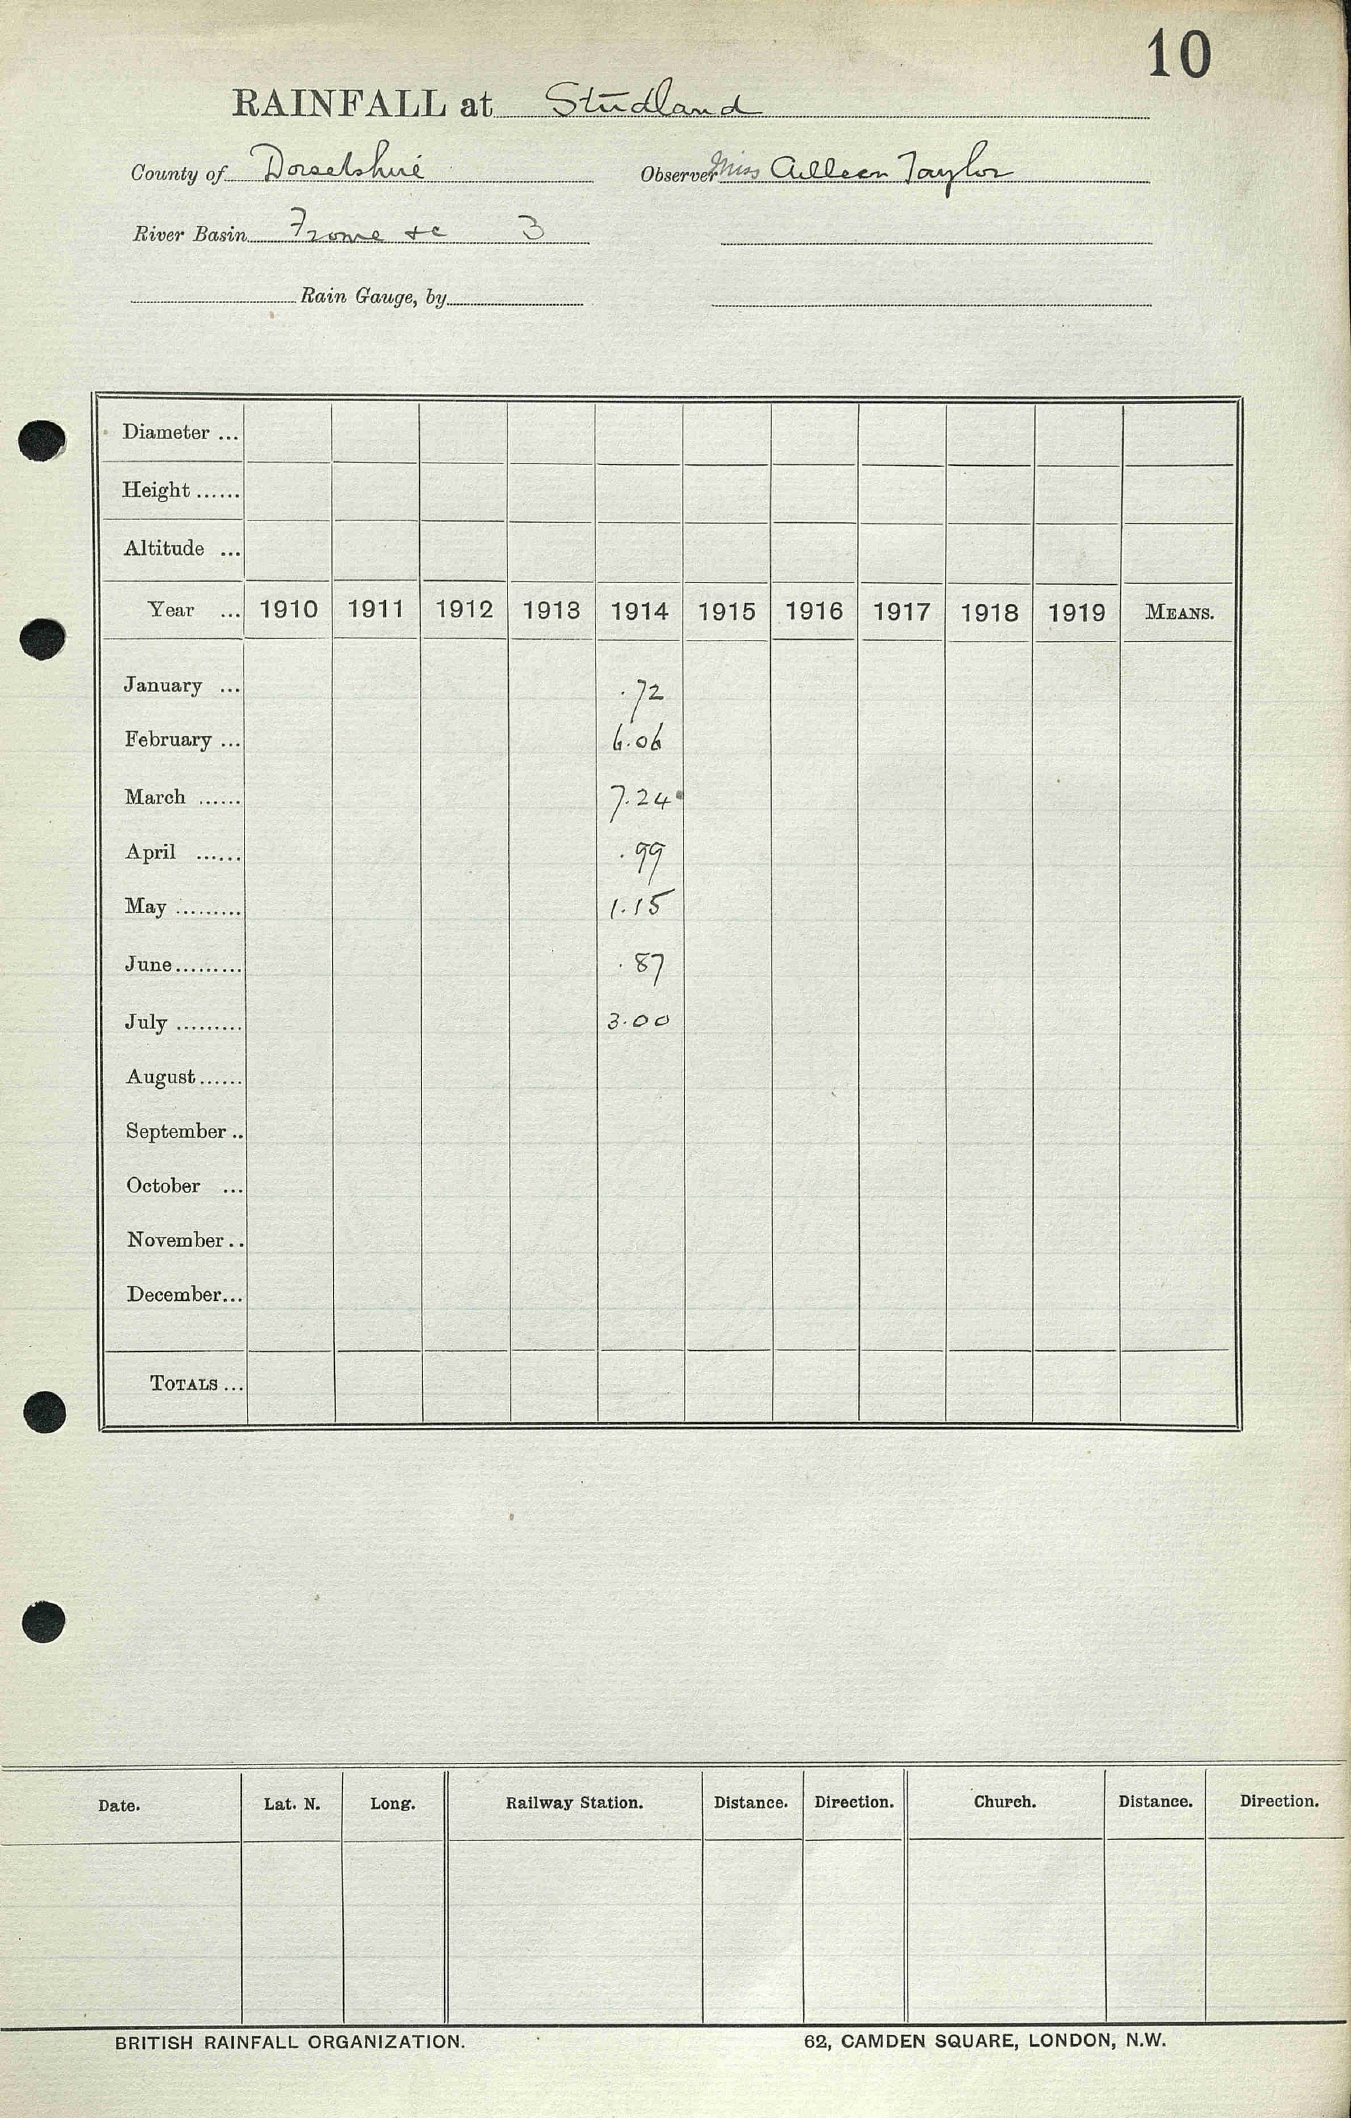 10
RAINFALL at Studland
County of Dorsetshire Observer Miss Aileen Taylor
River Basin Frome &c 3
Rain Gauge, by
Diameter ...
Height ......
Altitude ...
Year ... 1910 1911 1912 1913 1914 1915 1916 1917 1918 1919 MEANS.
January ... .72
February ... 6.06
March ...... 7.24
April ...... .99
May ......... 1.15
June ......... .87
July ......... 3.00
August ......
September ..
October ...
November ..
December ...
TOTALS ...
Date. Lat. N. Long. Railway Station. Distance. Direction. Church. Distance. Direction.
BRITISH RAINFALL ORGANIZATION. 62, CAMDEN SQUARE, LONDON, N.W.